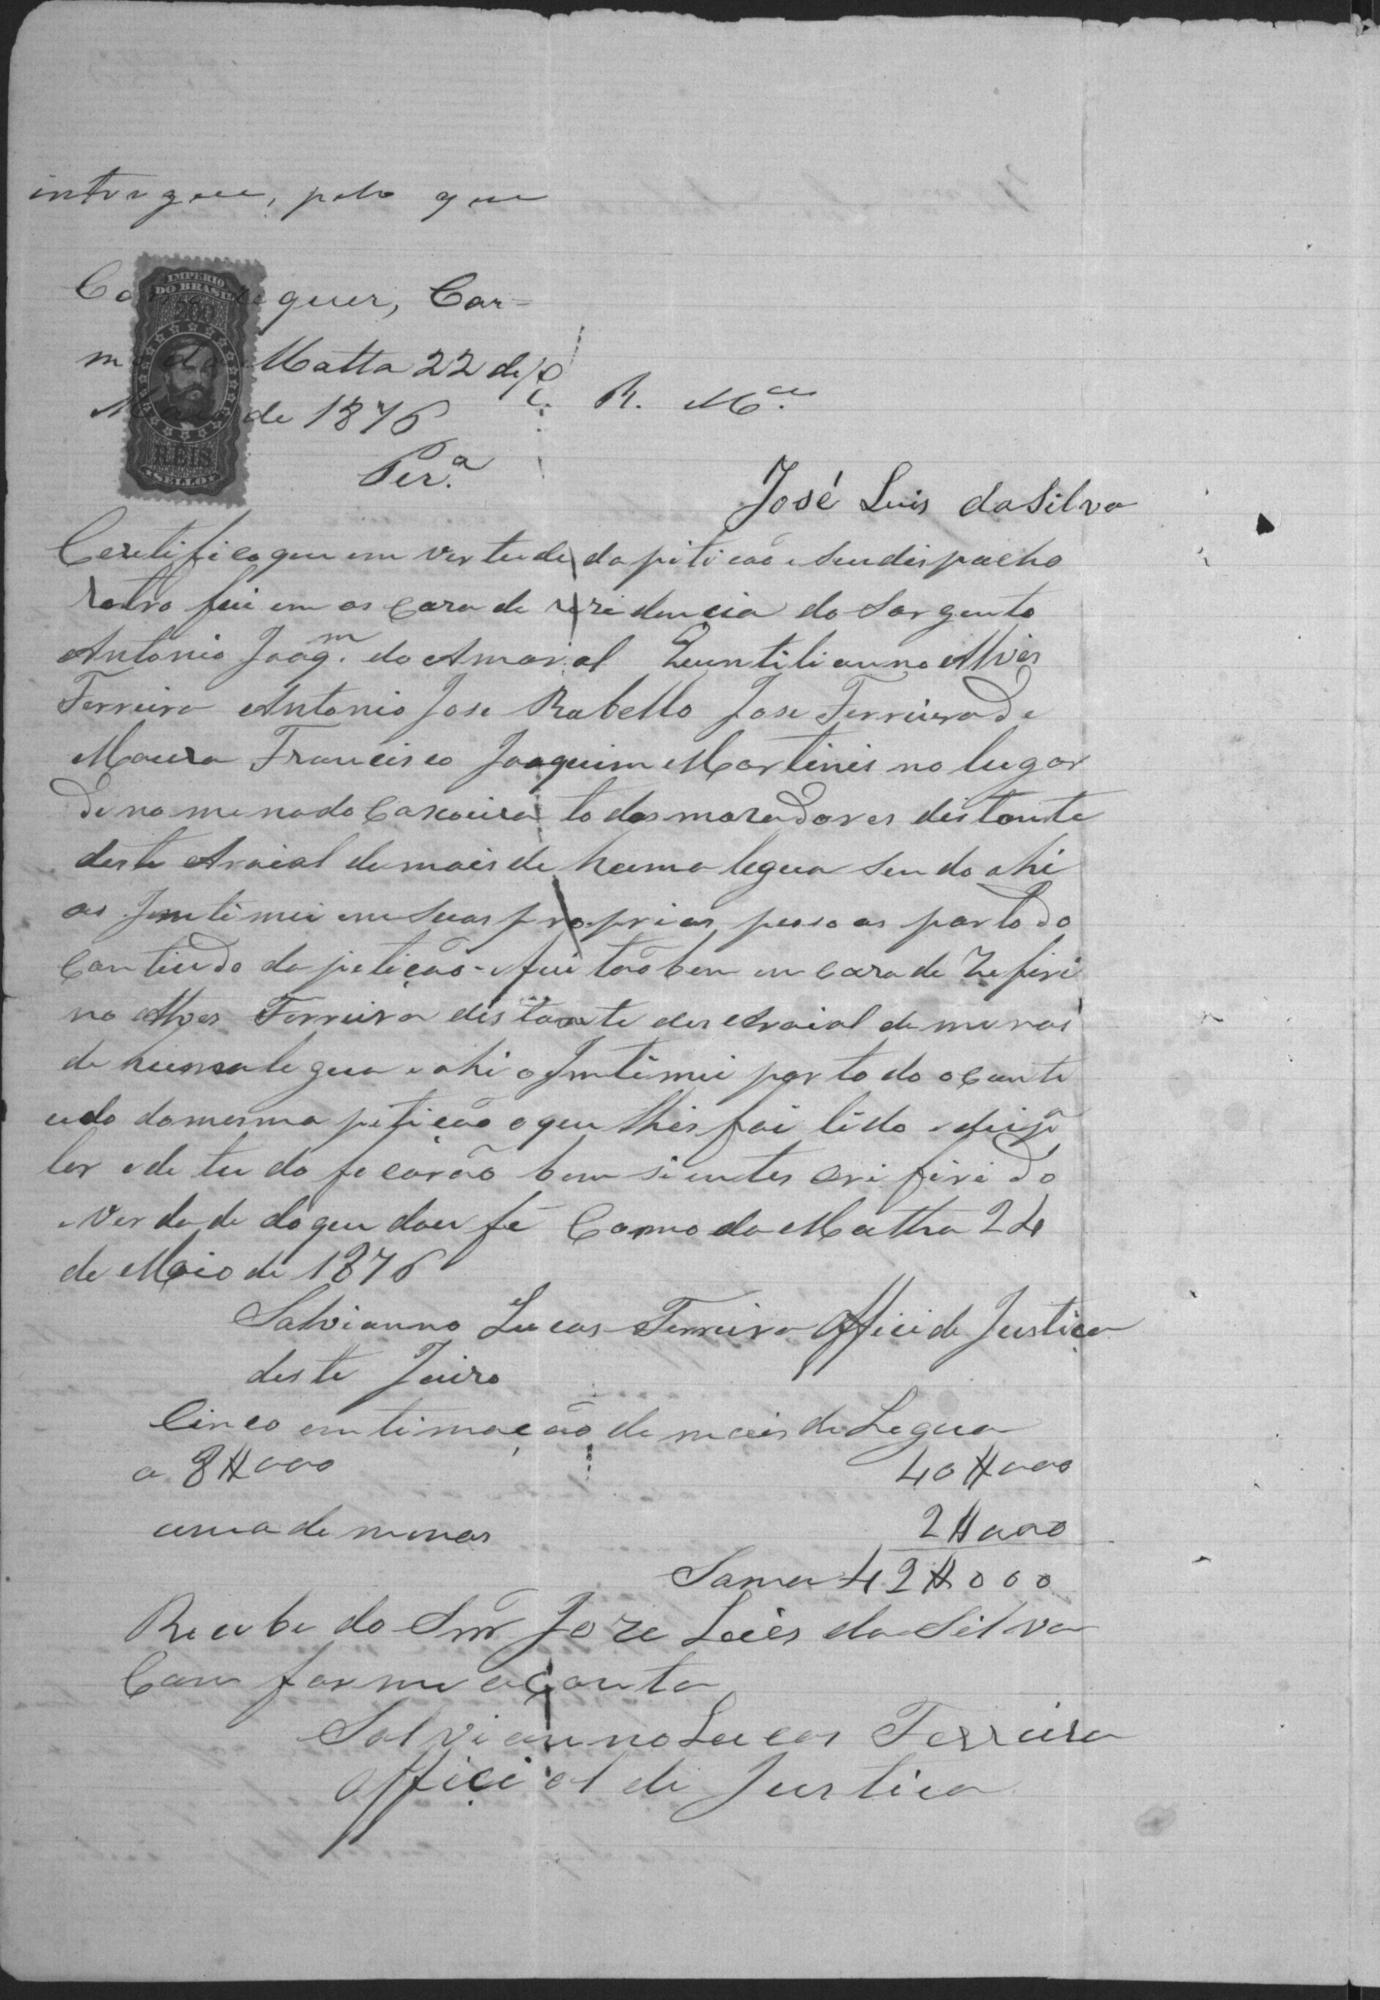 intregue, pelo que
Como requer, Car-
mo da Matta 22 de
Maio de 1876
P.
E. R. M.ce
Per.a
IMPERIO
DO BRASIL
200
REIS
SELLO
José Luis da Silva
Certifico que em vertude da piticão e seu dispacho
retro fui em as caza de rezidencia do Sargento
Antonio Joaq.m do Amaral Quintilianno Alves
Ferreira Antonio Jose Rabello Jose Ferreira de
Moura Francisco Joaquim Martines no lugar
denomenado Caxoeira todos moradores distante
deste Araial de mais de huma legua sendo ahi
os Jmtimei em suas proprias pesoas por todo
contiudo da peticão e fui tãobem em caza de Zefiri
no Alves Ferreira distante des Araial de menos
de huma legua e ahi o Jmtimei por todo o conte
udo da mesma piticão o que lhes foi lido e
ler e de tudo ficarão bem sientes o rifirido
e verdade do que dou fé Carmo da Matta 24
de Maio de 1876
Salvianno Lucas Ferreira Offici de Justica
deste Juizo
Cinco emtimação de mais de Legua
a 8$000 40$000
uma de menos 2$000
Soma 42$000
Recebi do Snr Joze Luis da Silva
Comforme a conta
Salvianno Lucas Ferreira
Official de Justica